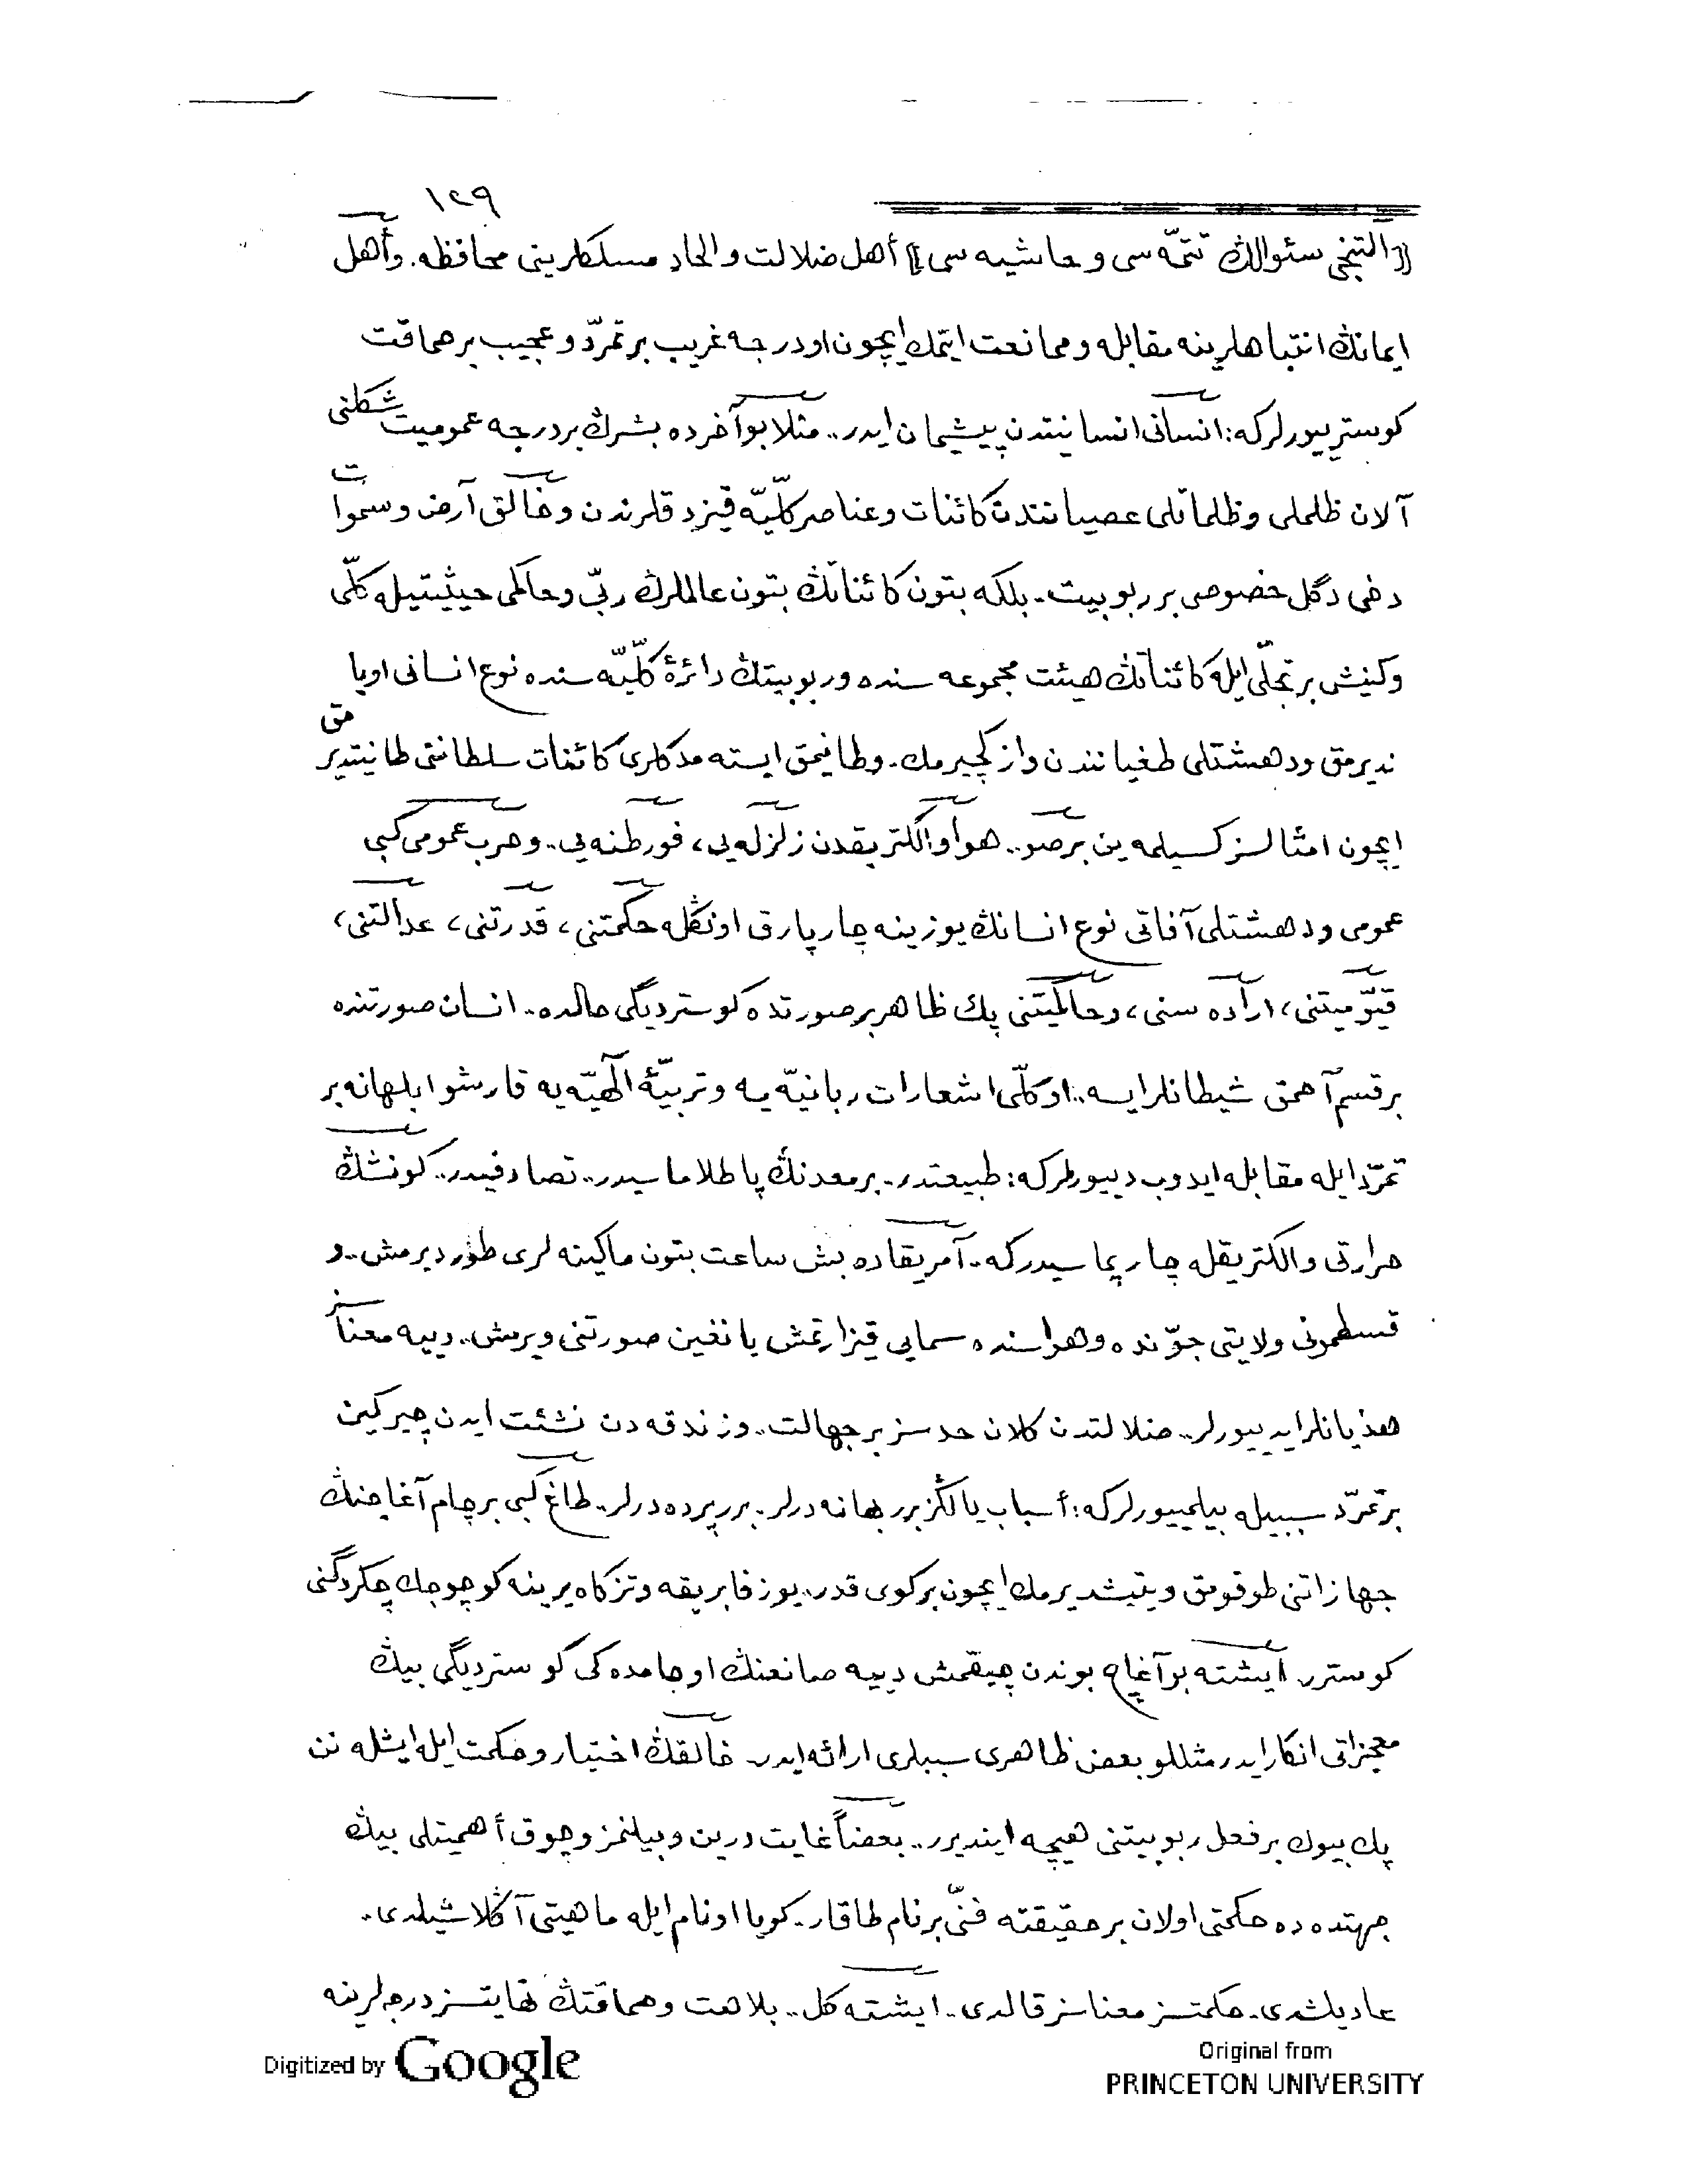 ١٢٩
[[التنجى سئوالڭ تتمّه سى و حاشيه سى]] أهل ضلالت و الحاد مسلكلرينى محافظه. وأهل
ايمانڭ انتباهلرينه مقابله و ممانعت ايتمك ايچون او درجه غريب بر تمرّد و عجيب بر حماقت
كوستريييورلركه: انسانى انسانيتدن پيشيمان ايدر.. مثلا بو آخرده بشرڭ بر درجه عموميت شكلنى
آلان ظلملى و ظلماتلى عصيانندن كائنات و عناصر كلّيّه قيزدقلرندن و خالق آرض و سموات
دخى دگل خصوصى بر ربوبيت.. بلكه بتون كائناتڭ بتون عالملرڭ ربّى و حاكمى حيثيتيله كلّى
وكنيش بر تجلّى ايله كائناتڭ هيئت مجموعه سنده و ربوبيتڭ دائرۀ كلّيّه سنده نوع انسانى اويا
نديرمق و دهشتلى طغيانندن واز كچيرمك. و طانيمق ايسته مدكلرى كائنات سلطاننى طانيتديرمق
ايچون امثالسز كسيلمه ين بر صو.. هوا و الكتريقدن زلزله يى، فورطنه يى.. و حرب عمومى كبى
عمومى و دهشتلى آفاتى نوع انسانڭ يوزينه چارپارق اونڭله حكمتنى، قدرتنى، عدالتنى،
قيّوميتنى، اراده سنى، و حاكميتنى پك ظاهر بر صورتده كوسترديگى حالده.. انسان صورتنده
بر قسم آحمق شيطانلر ايسه.. او كلّى اشعارات ربانيّه يه و تربيۀ الٓهيّه يه قارشو ابلهانه بر
تمرّد ايله مقابله ايدوب دييورلركه: طبيعتدر.. بر معدنڭ پاطلاماسيدر.. تصادفيدر.. كونشڭ
حرارتى و الكتريقله چارپماسيدركه.. آمريقاده بش ساعت بتون ماكينه لرى طورديرمش.. و
قسطمونى ولايتى جوّنده و هواسنده سمايى قيزارتمش يانغين صورتنى ويرمش.. دييه معناسز
هذيانلر ايدييورلر.. ضلالتدن كلان حدسز بر جهالت.. و زندقه دن نشئت ايدن چيركين
بر تمرّد سببيله بيلمييورلركه: أسباب يالڭز بر بهانه درلر.. بر پرده درلر.. طاغ كبى بر چام آغاجنڭ
جهازاتنى طوقومق و يتيشديرمك ايچون بر كوى قدر.. يوز فابريقه و تزكاه يرينه كوچوجك چكردگنى
كوسترر. ايشته بو آغاج بوندن چيقمش دييه صانعنڭ او چامده كى كوسترديگى بيڭ
معجزاتى انكار ايدر مثللو بعض ظاهرى سببلرى ارائه ايدر. خالقڭ اختيار و حكمت ايله ايشله نن
پك بيوك بر فعل ربوبيتنى هيچه اينديرر.. بعضاً غايت درين و بيلنمز و چوق أهميتلى بيڭ
جهتده ده حكمتى اولان بر حقيقته فنّى بر نام طاقار.. كويا او نام ايله ماهيتى آڭلاشيلدى.
عاديلشدى. حكمتسز معناسز قالدى.. ايشته كل.. بلاهت و حماقتڭ نهايتسز درجه لرينه
Digitized by Google
Original from
PRINCETON UNIVERSITY